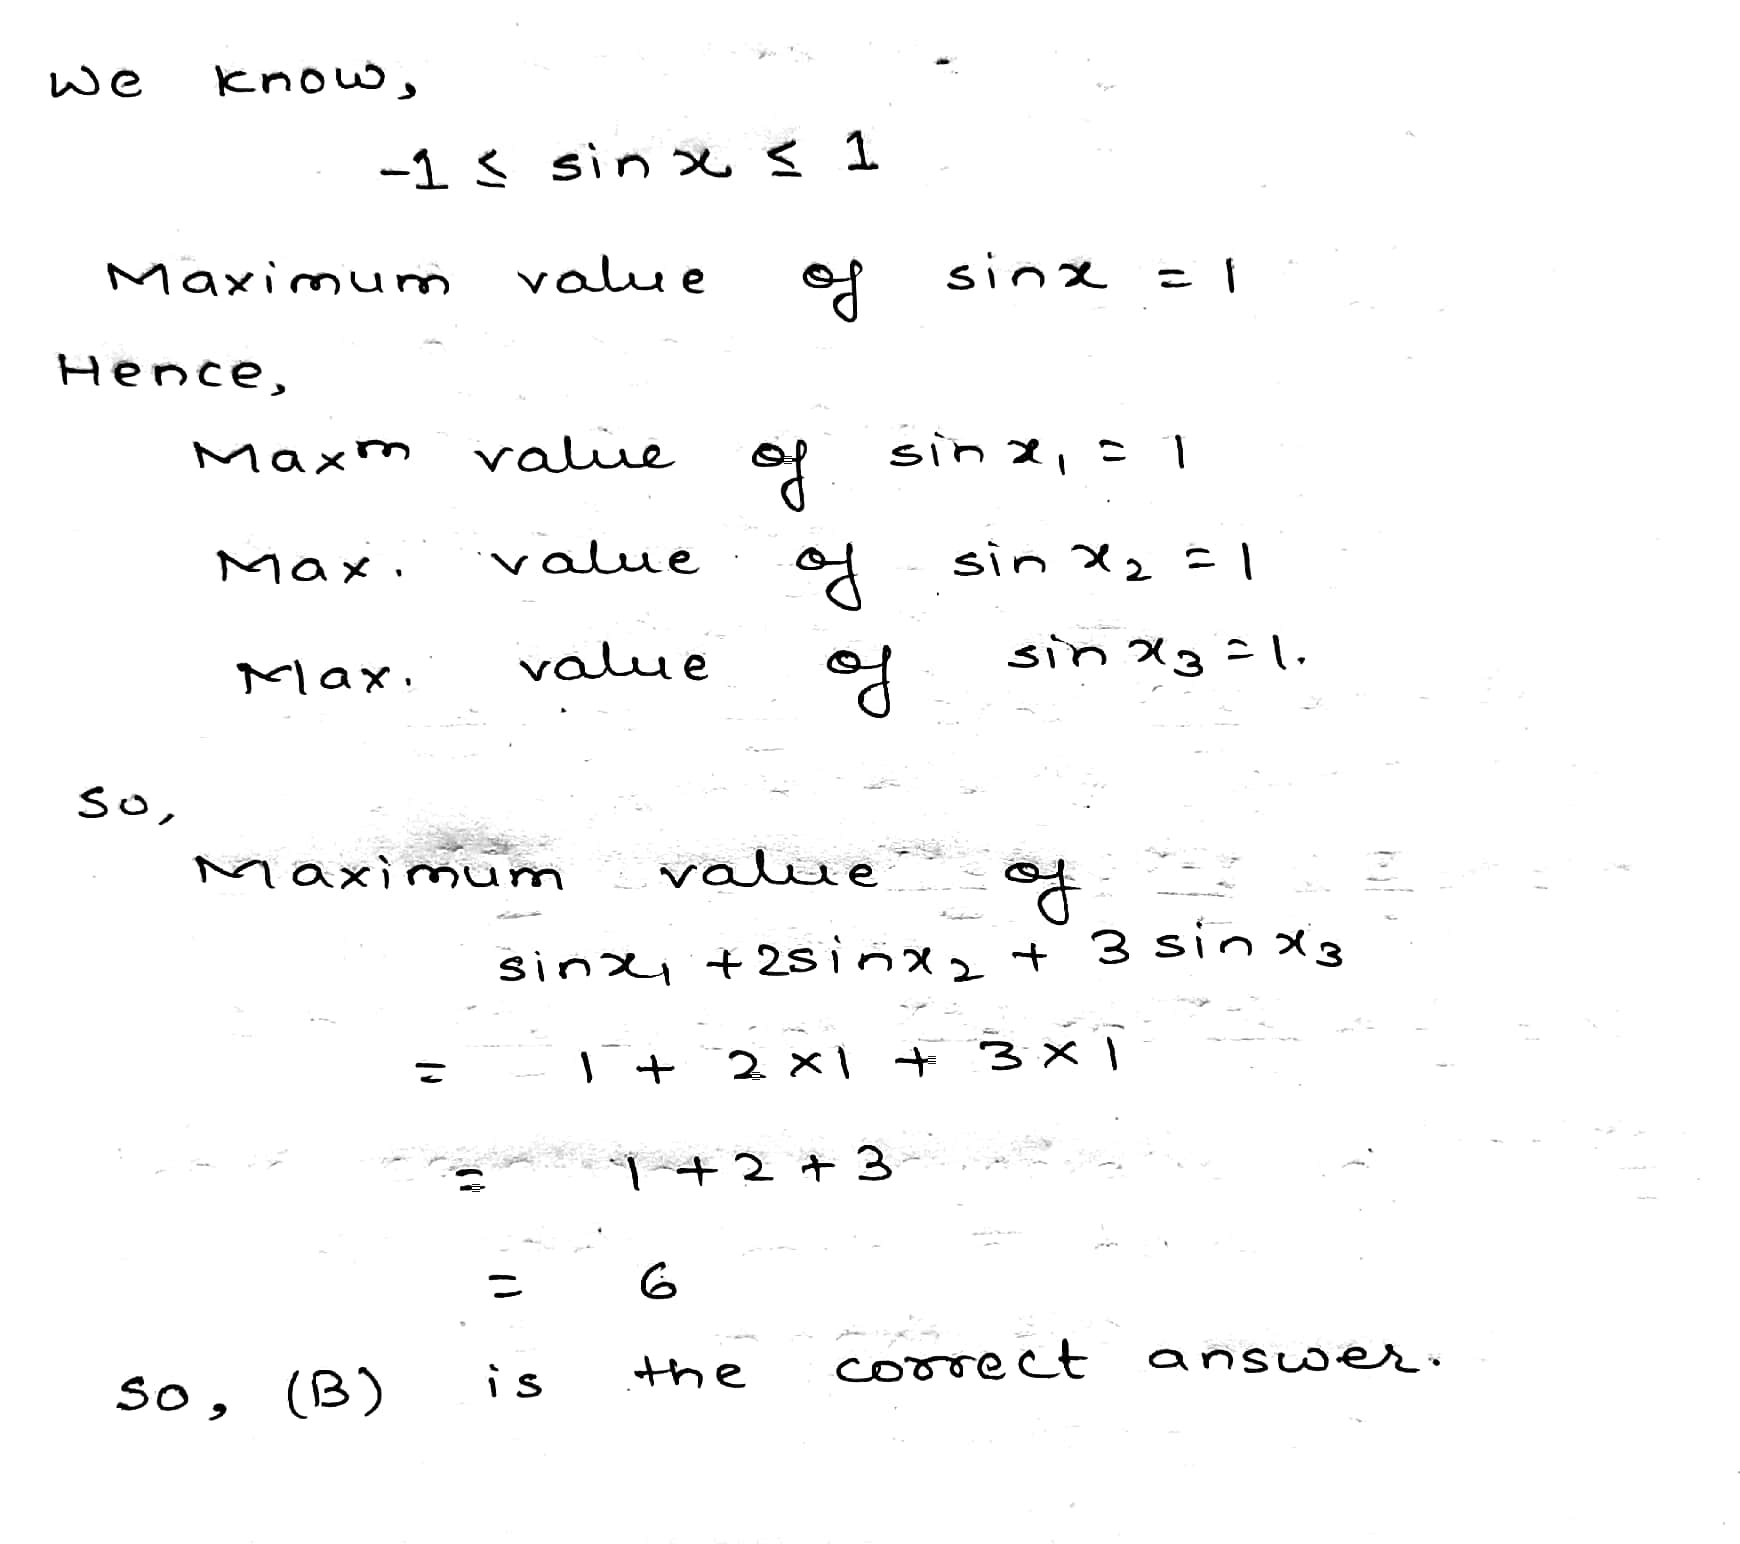 We know,
-1 ≤ sin x ≤ 1
Maximum value of sinx = 1
Hence,
Maxm value of sin x₁ = 1
Max. value of sin x₂ = 1
Max. value of sin x₃ = 1.
So,
Maximum value of
sinx₁ + 2sinx₂ + 3 sin x₃
= 1 + 2 × 1 + 3 × 1
= 1 + 2 + 3
= 6
So, (B) is the correct answer.